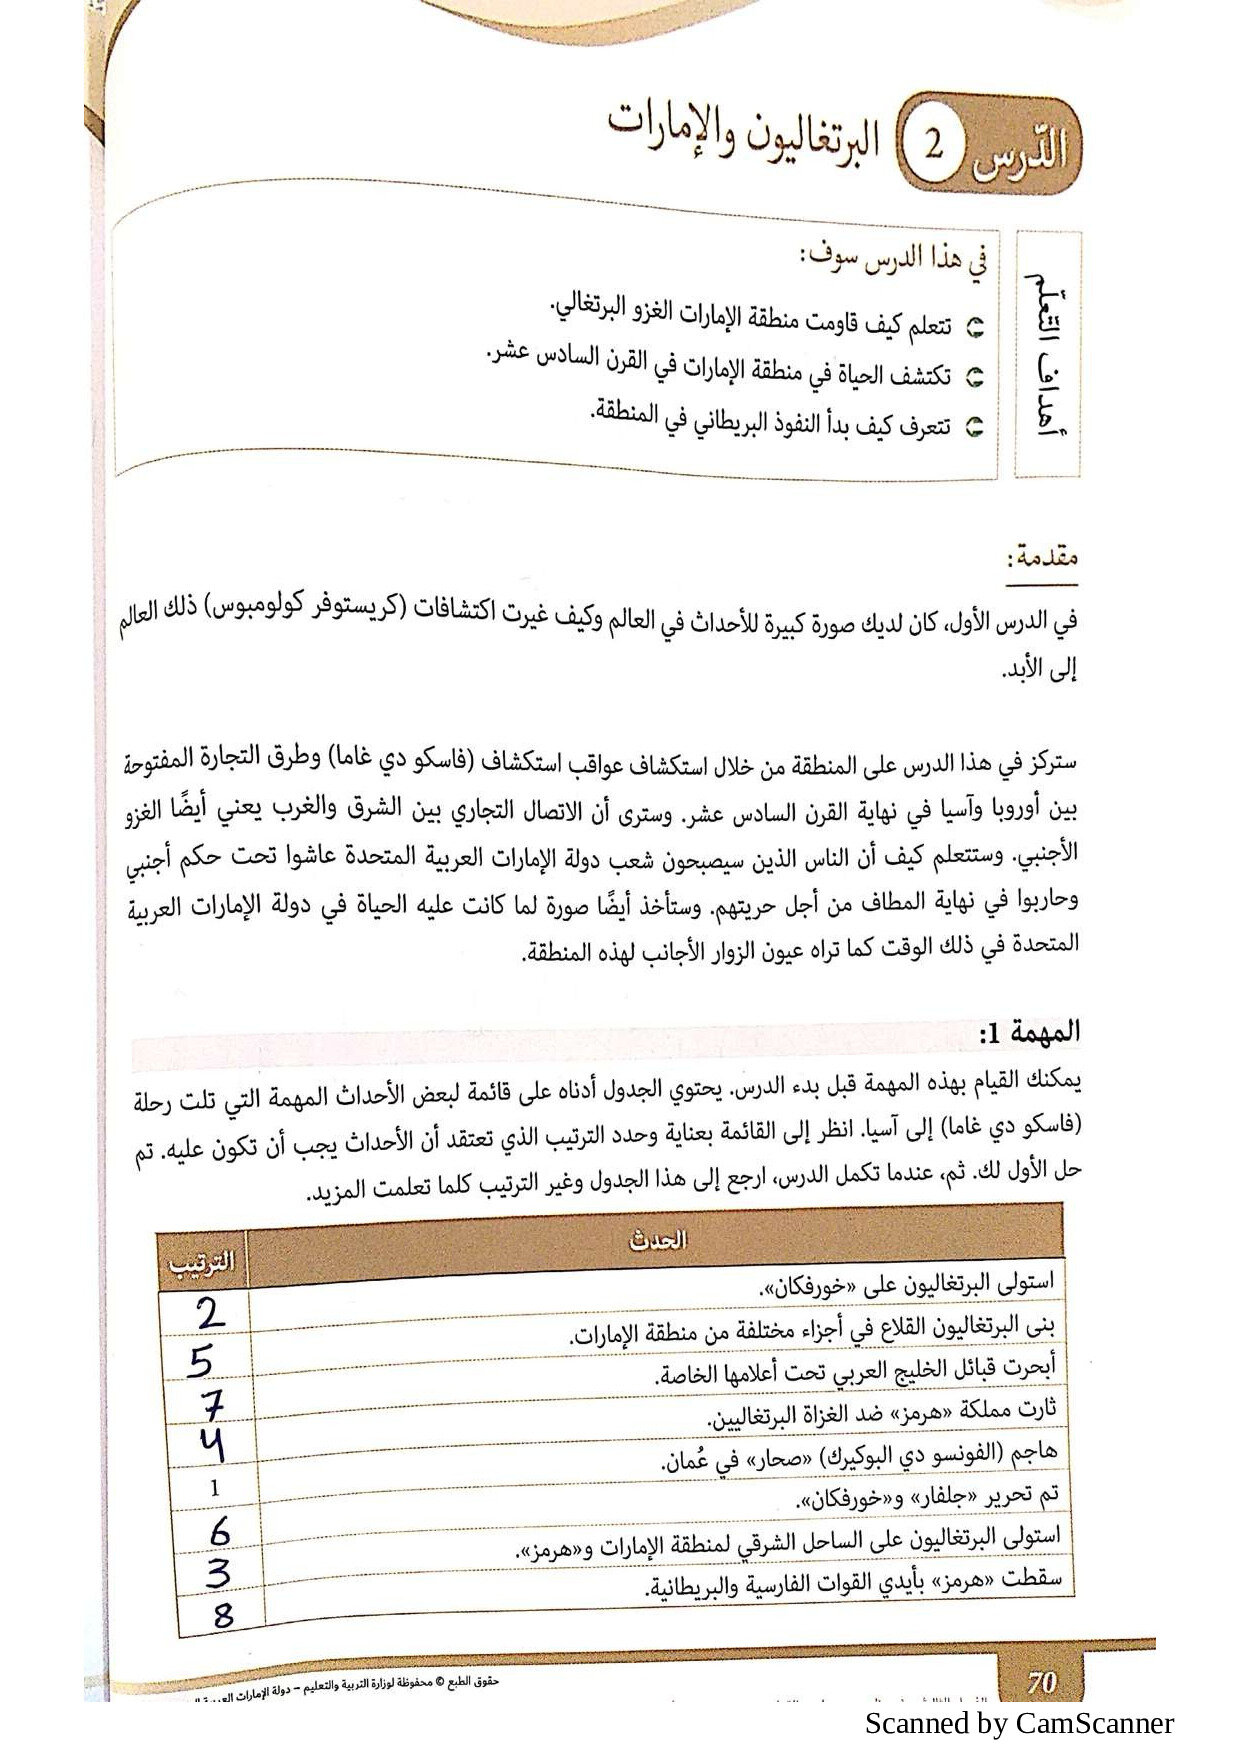 الدّرس 2 البرتغاليون والإمارات
أهداف التّعلّم
في هذا الدرس سوف:
تتعلم كيف قاومت منطقة الإمارات الغزو البرتغالي.
تكتشف الحياة في منطقة الإمارات في القرن السادس عشر.
تتعرف كيف بدأ النفوذ البريطاني في المنطقة.
مقدمة:
في الدرس الأول، كان لديك صورة كبيرة للأحداث في العالم وكيف غيرت اكتشافات (كريستوفر كولومبوس) ذلك العالم
إلى الأبد.
ستركز في هذا الدرس على المنطقة من خلال استكشاف عواقب استكشاف (فاسكو دي غاما) وطرق التجارة المفتوحة
بين أوروبا وآسيا في نهاية القرن السادس عشر. وسترى أن الاتصال التجاري بين الشرق والغرب يعني أيضًا الغزو
الأجنبي. وستتعلم كيف أن الناس الذين سيصبحون شعب دولة الإمارات العربية المتحدة عاشوا تحت حكم أجنبي
وحاربوا في نهاية المطاف من أجل حريتهم. وستأخذ أيضًا صورة لما كانت عليه الحياة في دولة الإمارات العربية
المتحدة في ذلك الوقت كما تراه عيون الزوار الأجانب لهذه المنطقة.
المهمة 1:
يمكنك القيام بهذه المهمة قبل بدء الدرس. يحتوي الجدول أدناه على قائمة لبعض الأحداث المهمة التي تلت رحلة
(فاسكو دي غاما) إلى آسيا. انظر إلى القائمة بعناية وحدد الترتيب الذي تعتقد أن الأحداث يجب أن تكون عليه. تم
حل الأول لك. ثم، عندما تكمل الدرس، ارجع إلى هذا الجدول وغير الترتيب كلما تعلمت المزيد.
الحدث الترتيب
استولى البرتغاليون على «خورفكان». 2
بنى البرتغاليون القلاع في أجزاء مختلفة من منطقة الإمارات. 5
أبحرت قبائل الخليج العربي تحت أعلامها الخاصة. 7
ثارت مملكة «هرمز» ضد الغزاة البرتغاليين. 4
هاجم (الفونسو دي البوكيرك) «صحار» في عُمان. 1
تم تحرير «جلفار» و«خورفكان». 6
استولى البرتغاليون على الساحل الشرقي لمنطقة الإمارات و«هرمز». 3
سقطت «هرمز» بأيدي القوات الفارسية والبريطانية. 8
70
حقوق الطبع © محفوظة لوزارة التربية والتعليم – دولة الإمارات العربية
Scanned by CamScanner